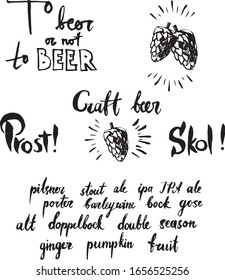 To beer
or not
to BEER
Craft beer
Prost!
Skol!
pilsner stout ale ipa IPA ale
porter barleywine bock gose
alt doppelbock double season
ginger pumpkin fruit
shutterstock.com · 1656525256